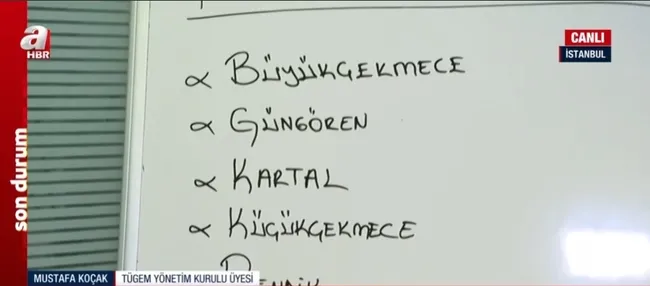 a
HBR
CANLI
İSTANBUL
∝ BÜYÜKÇEKMECE
∝ GÜNGÖREN
∝ KARTAL
∝ KÜÇÜKÇEKMECE
son durum
MUSTAFA KOÇAK TÜGEM YÖNETİM KURULU ÜYESİ